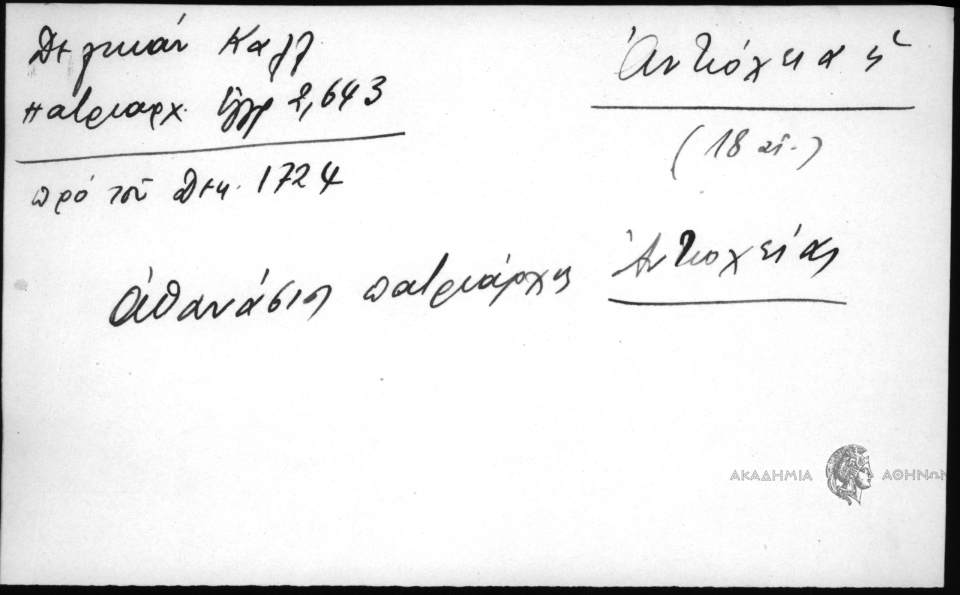 Δελικάν Καλλ
Πατριαρχ. Ἔγγρ 2,643
πρό τοῦ Δεκ. 1724
Ἀντιόχεια ἡ
(18 αἰ.)
Ἀθανάσιος πατριάρχης Ἀντιοχείας
ΑΚΑΔΗΜΙΑ ΑΘΗΝΩΝ